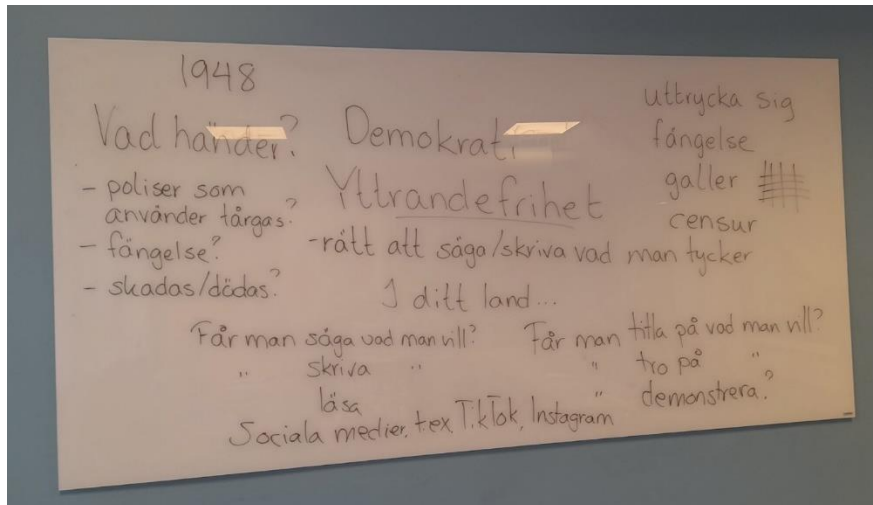 1948
Vad händer?
- poliser som
använder tårgas?
- fängelse?
- skadas/dödas?
Demokrati
Yttrandefrihet
- rätt att säga/skriva vad man tycker
uttrycka sig
fängelse
galler
censur
I ditt land...
Får man säga vad man vill?
" skriva "
läsa "
Får man titta på vad man vill?
" tro på "
demonstrera?
Sociala medier, t.ex TikTok, Instagram